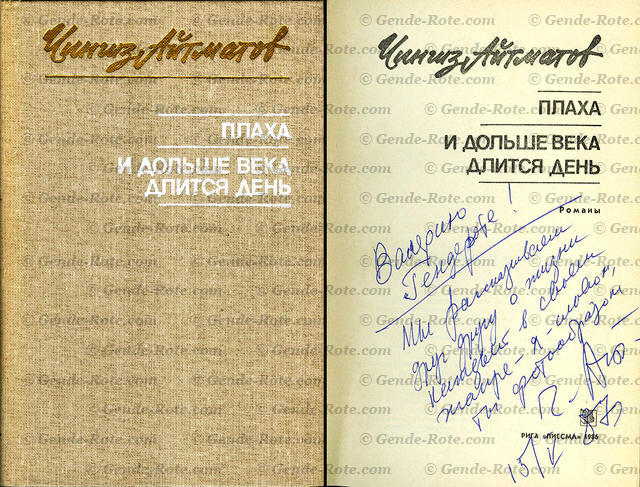 Чингиз Айтматов
ПЛАХА
И ДОЛЬШЕ ВЕКА
ДЛИТСЯ ДЕНЬ
Чингиз Айтматов
ПЛАХА
И ДОЛЬШЕ ВЕКА
ДЛИТСЯ ДЕНЬ
Романы
Валерию
Гендероте!
Мы рассказываем
друг другу о жизни
каждый в своем
жанре - я - словом,
ты фотообразом
РИГА «ЛИЕСМА» 1986
© Gende-Rote.com